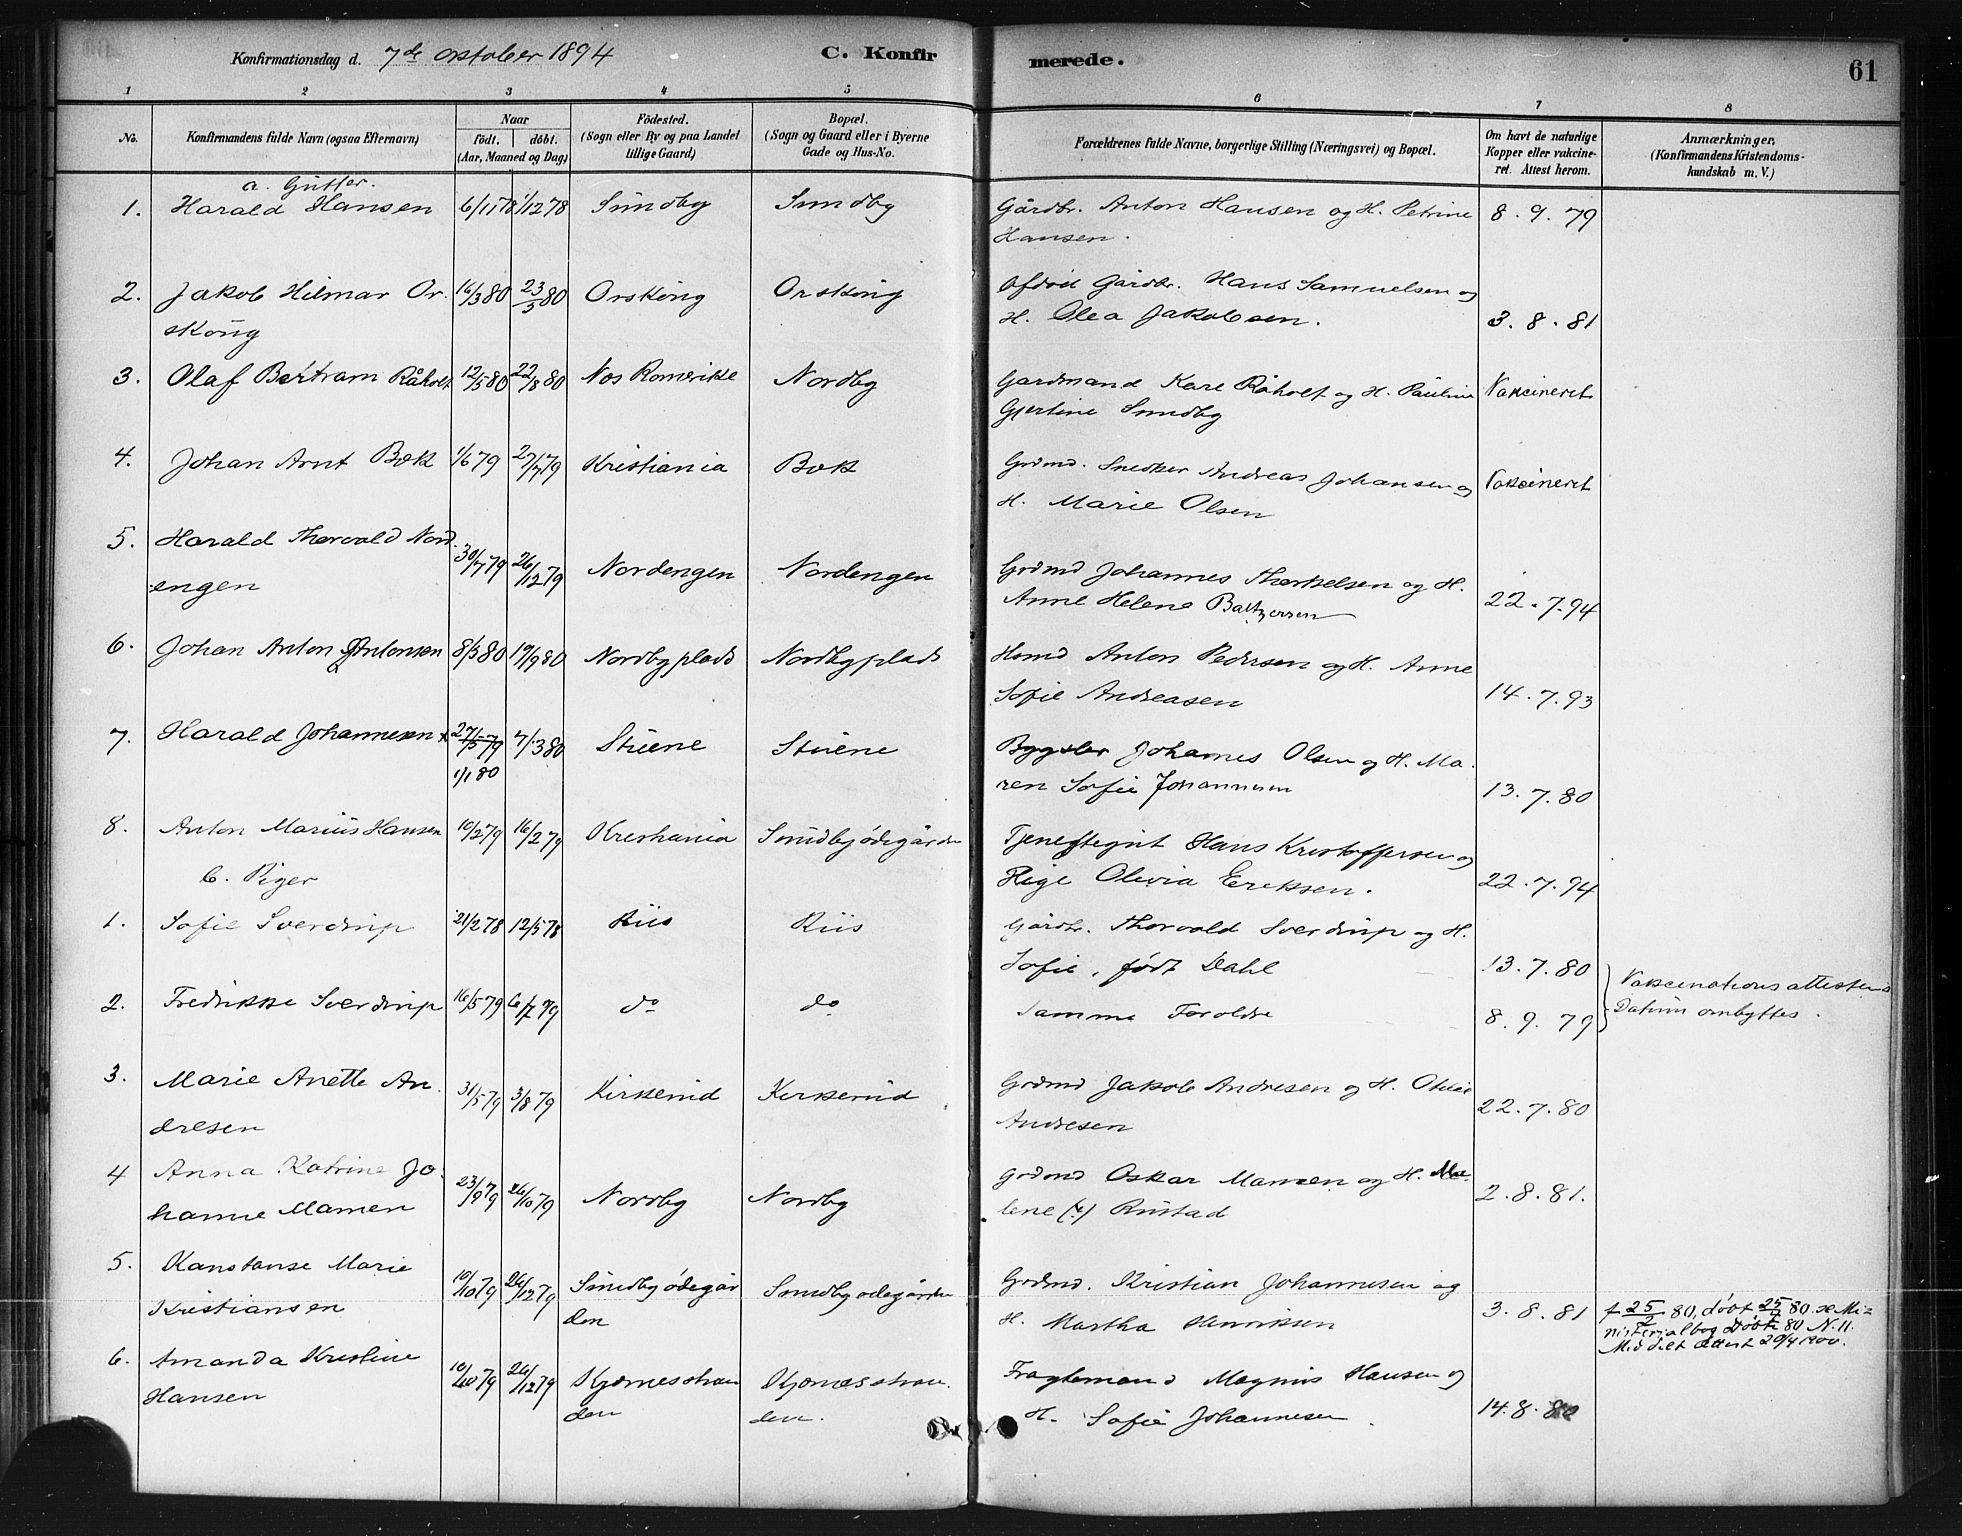 Konfirmationsdag d. 7de oktober 1894 C. Konfirmerede. 61
1 2 3 4 5 6 7 8
No. Konfirmandens fulde Navn (ogsaa Efternavn) Naar født. døbt. (Aar, Maaned og Dag) Fødested. (Sogn eller By og paa Landet tillige Gaard) Bopæl. (Sogn og Gaard eller i Byerne Gade og Hus-No. Forældrenes fulde Navne, borgerlige Stilling (Næringsvei) og Bopæl. Om havt de naturlige Kopper eller vakcineret. Attest herom. Anmærkninger. (Konfirmandens Kristendomskundskab m. V.)
a. Gutter.
1. Harald Hansen 6/11 78 1/12 78 Sundby Sundby Gårdbr. Anton Hansen og H. Petrine 8. 9. 79
Hansen.
2. Jakob Hilmar Or- 16/3 80 23/5 80 Orskoug Orskoug Afdød Gårdbr. Hans Samuelsen og
skoug H. Olea Jakobsen. 3. 8. 81
3. Olaf Bertram Råholt 12/5 80 22/8 80 Nes Romerike Nordby Gardmand Kare Råholt og H. Pauline Vakcineret
Gjertine Sundby
4. Johan Arnt Bæk 1/6 79 27/7 79 Kristiania Bæk Grdmd. Snedker Andreas Johansen og Vakcineret
H. Marie Olsen
5. Harald Thorvald Nord-
engen 30/7 79 26/12 79 Nordengen Nordengen Grdmd Johannes Therkelsen og H.
Anne Helene Baltzersen 22. 7. 94
6. Johan Anton Antonsen 8/3 80 19/9 80 Nordbyplads Nordbyplads Hsmd Anton Pedersen og H. Anne
Sofie Andreasen 14. 7. 93
7. Harald Johannesen x 27/5 79 7/3 80 Stuene Stuene Bygsler Johannes Olsen og H. Ma-
1/1 80 ren Sofie Johannesen 13. 7. 80
8. Anton Marius Hansen 10/2 79 16/2 79 Kristiania Sundbyødegården Tjenestegut Hans Kristoffersen og
Pige Olivia Eriksen. 22. 7. 94
b. Piger
1. Sofie Sverdrup 21/2 78 12/5 78 Riis Riis Gårdbr. Thorvald Sverdrup og H.
Sofie, født Dahl 13. 7. 80
2. Fredrikke Sverdrup 16/5 79 6/7 79 do do Samme Foroldre 8. 9. 79 Vakcinationsattestens
Datum ombyttes.
3. Marie Anette An- 31/5 79 3/8 79 Kirkerud Kirkerud Grdmd Jakob Andresen og H.
dresen Andresen 22. 7. 80
4 Anna Katrine Jo-
hanne Mamen 23/9 79 26/10 79 Nordby Nordby Grdmd Oskar Mamen og H. Ma-
lene Rustad 2. 8. 81.
5. Konstanse Marie
Kristiansen 10/10 79 26/12 79 Sundbyødegår Sundbyødegården Grdmd. Kristian Johannesen og
den H. Martha Henriksen 3. 8. 81 f 25/2 80, døbt 25/ 80 se Mi-
nisterialbog Døbte 80 N. 11.
Meddelt attest 20/4 1900.
6. Amanda Kristine
Hansen 10/10 79 26/12 79 Kjærnesstran Kjærnesstran- Fragtemand Magnus Hansen og
den den. H. Sofie Johannesen 14. 8. 80